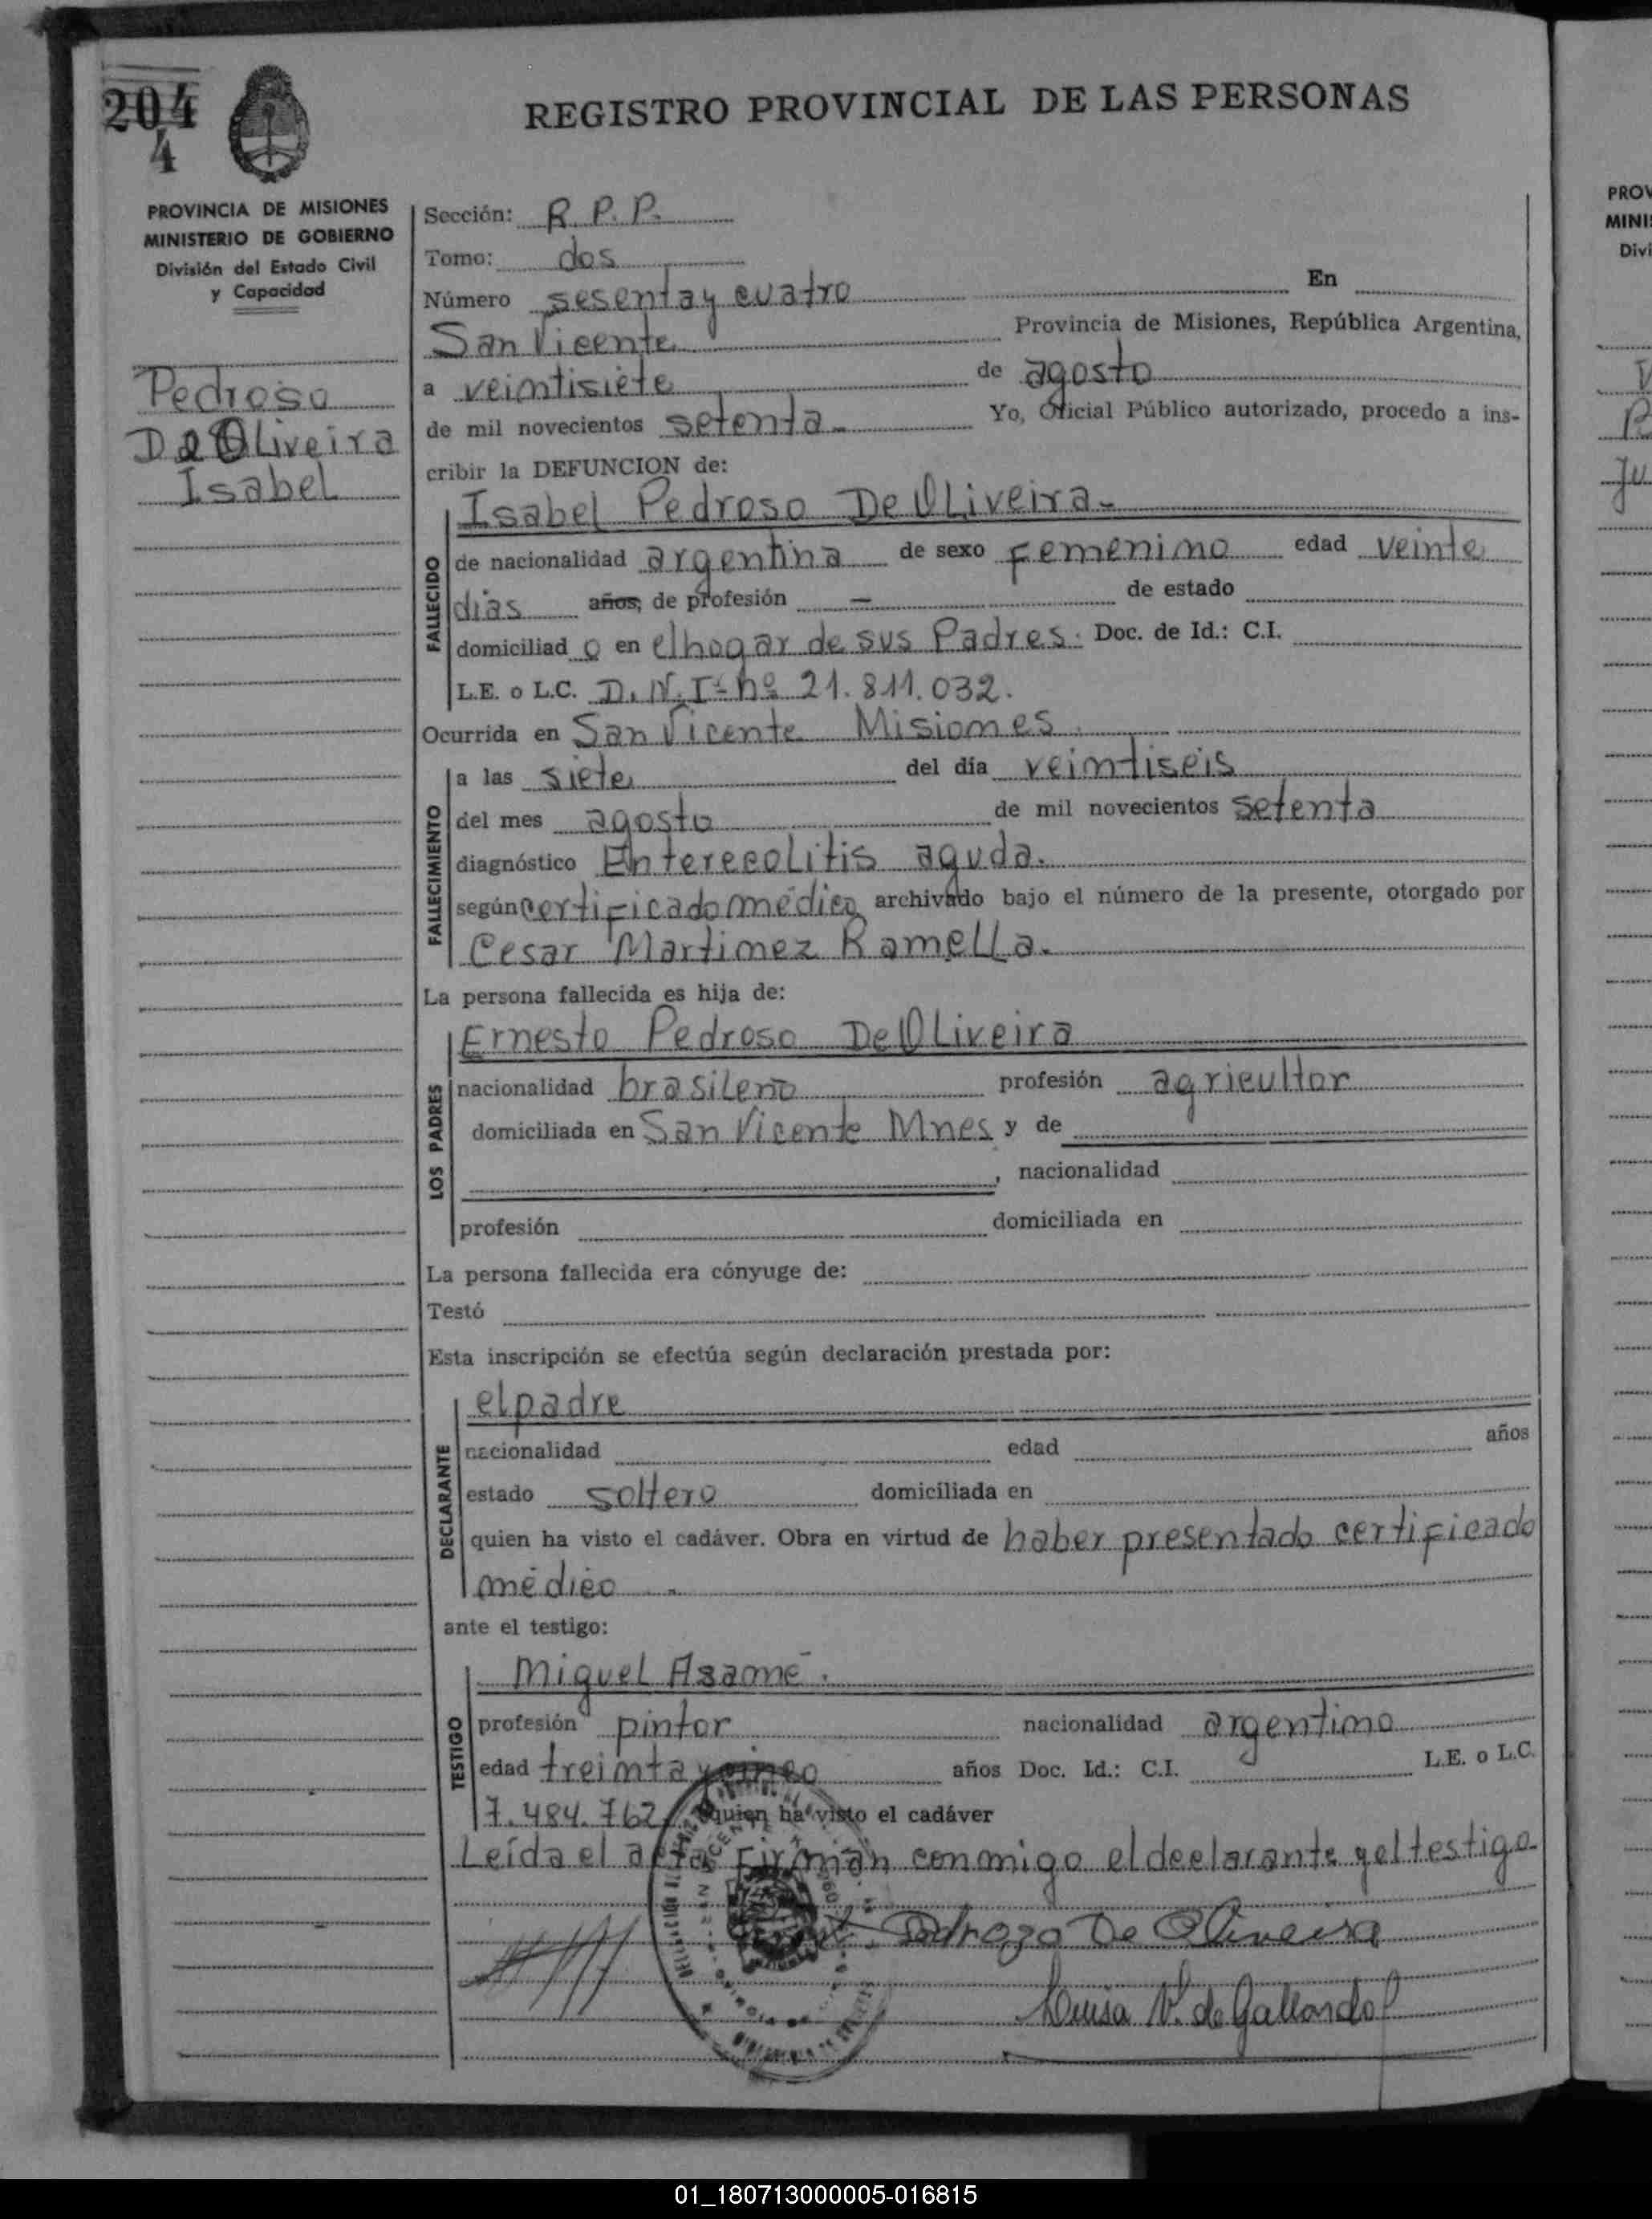 204
4
REGISTRO PROVINCIAL DE LAS PERSONAS
PROVINCIA DE MISIONES
MINISTERIO DE GOBIERNO
División del Estado Civil
y Capacidad
Pedroso
De Oliveira
Isabel
Sección: R. P. P.
Tomo: dos
Número sesenta y cuatro En
San Vicente Provincia de Misiones, República Argentina,
a veintisiete de agosto
de mil novecientos setenta Yo, Oficial Público autorizado, procedo a ins-
cribir la DEFUNCION de:
FALLECIDO
Isabel Pedroso De Oliveira.
de nacionalidad argentina de sexo femenino edad veinte
dias años, de profesión — de estado
domiciliad o en el hogar de sus Padres. Doc. de Id.: C.I.
L.E. o L.C. D.N.I. nº 21.811.032.
Ocurrida en San Vicente Misiones.
FALLECIMIENTO
a las siete del día veintiseis
del mes agosto de mil novecientos setenta
diagnóstico Enterecolitis aguda.
según certificado médico archivado bajo el número de la presente, otorgado por
Cesar Martinez Ramella.
La persona fallecida es hija de:
LOS PADRES
Ernesto Pedroso De Oliveira
nacionalidad brasileño profesión agricultor
domiciliada en San Vicente Mnes y de
, nacionalidad
profesión domiciliada en
La persona fallecida era cónyuge de:
Testó
Esta inscripción se efectúa según declaración prestada por:
DECLARANTE
el padre
nacionalidad edad años
estado soltero domiciliada en
quien ha visto el cadáver. Obra en virtud de haber presentado certificado
médico
ante el testigo:
TESTIGO
Miguel Asamé.
profesión pintor nacionalidad argentino
edad treinta y cinco años Doc. Id.: C.I. L.E. o L.C.
7.484.762 quien ha visto el cadáver
Leída el acta firman conmigo el declarante y el testigo
Pedrozo De Oliveira
Luisa V. de Gallardo
PROV
MINI
Divi
01_180713000005-016815